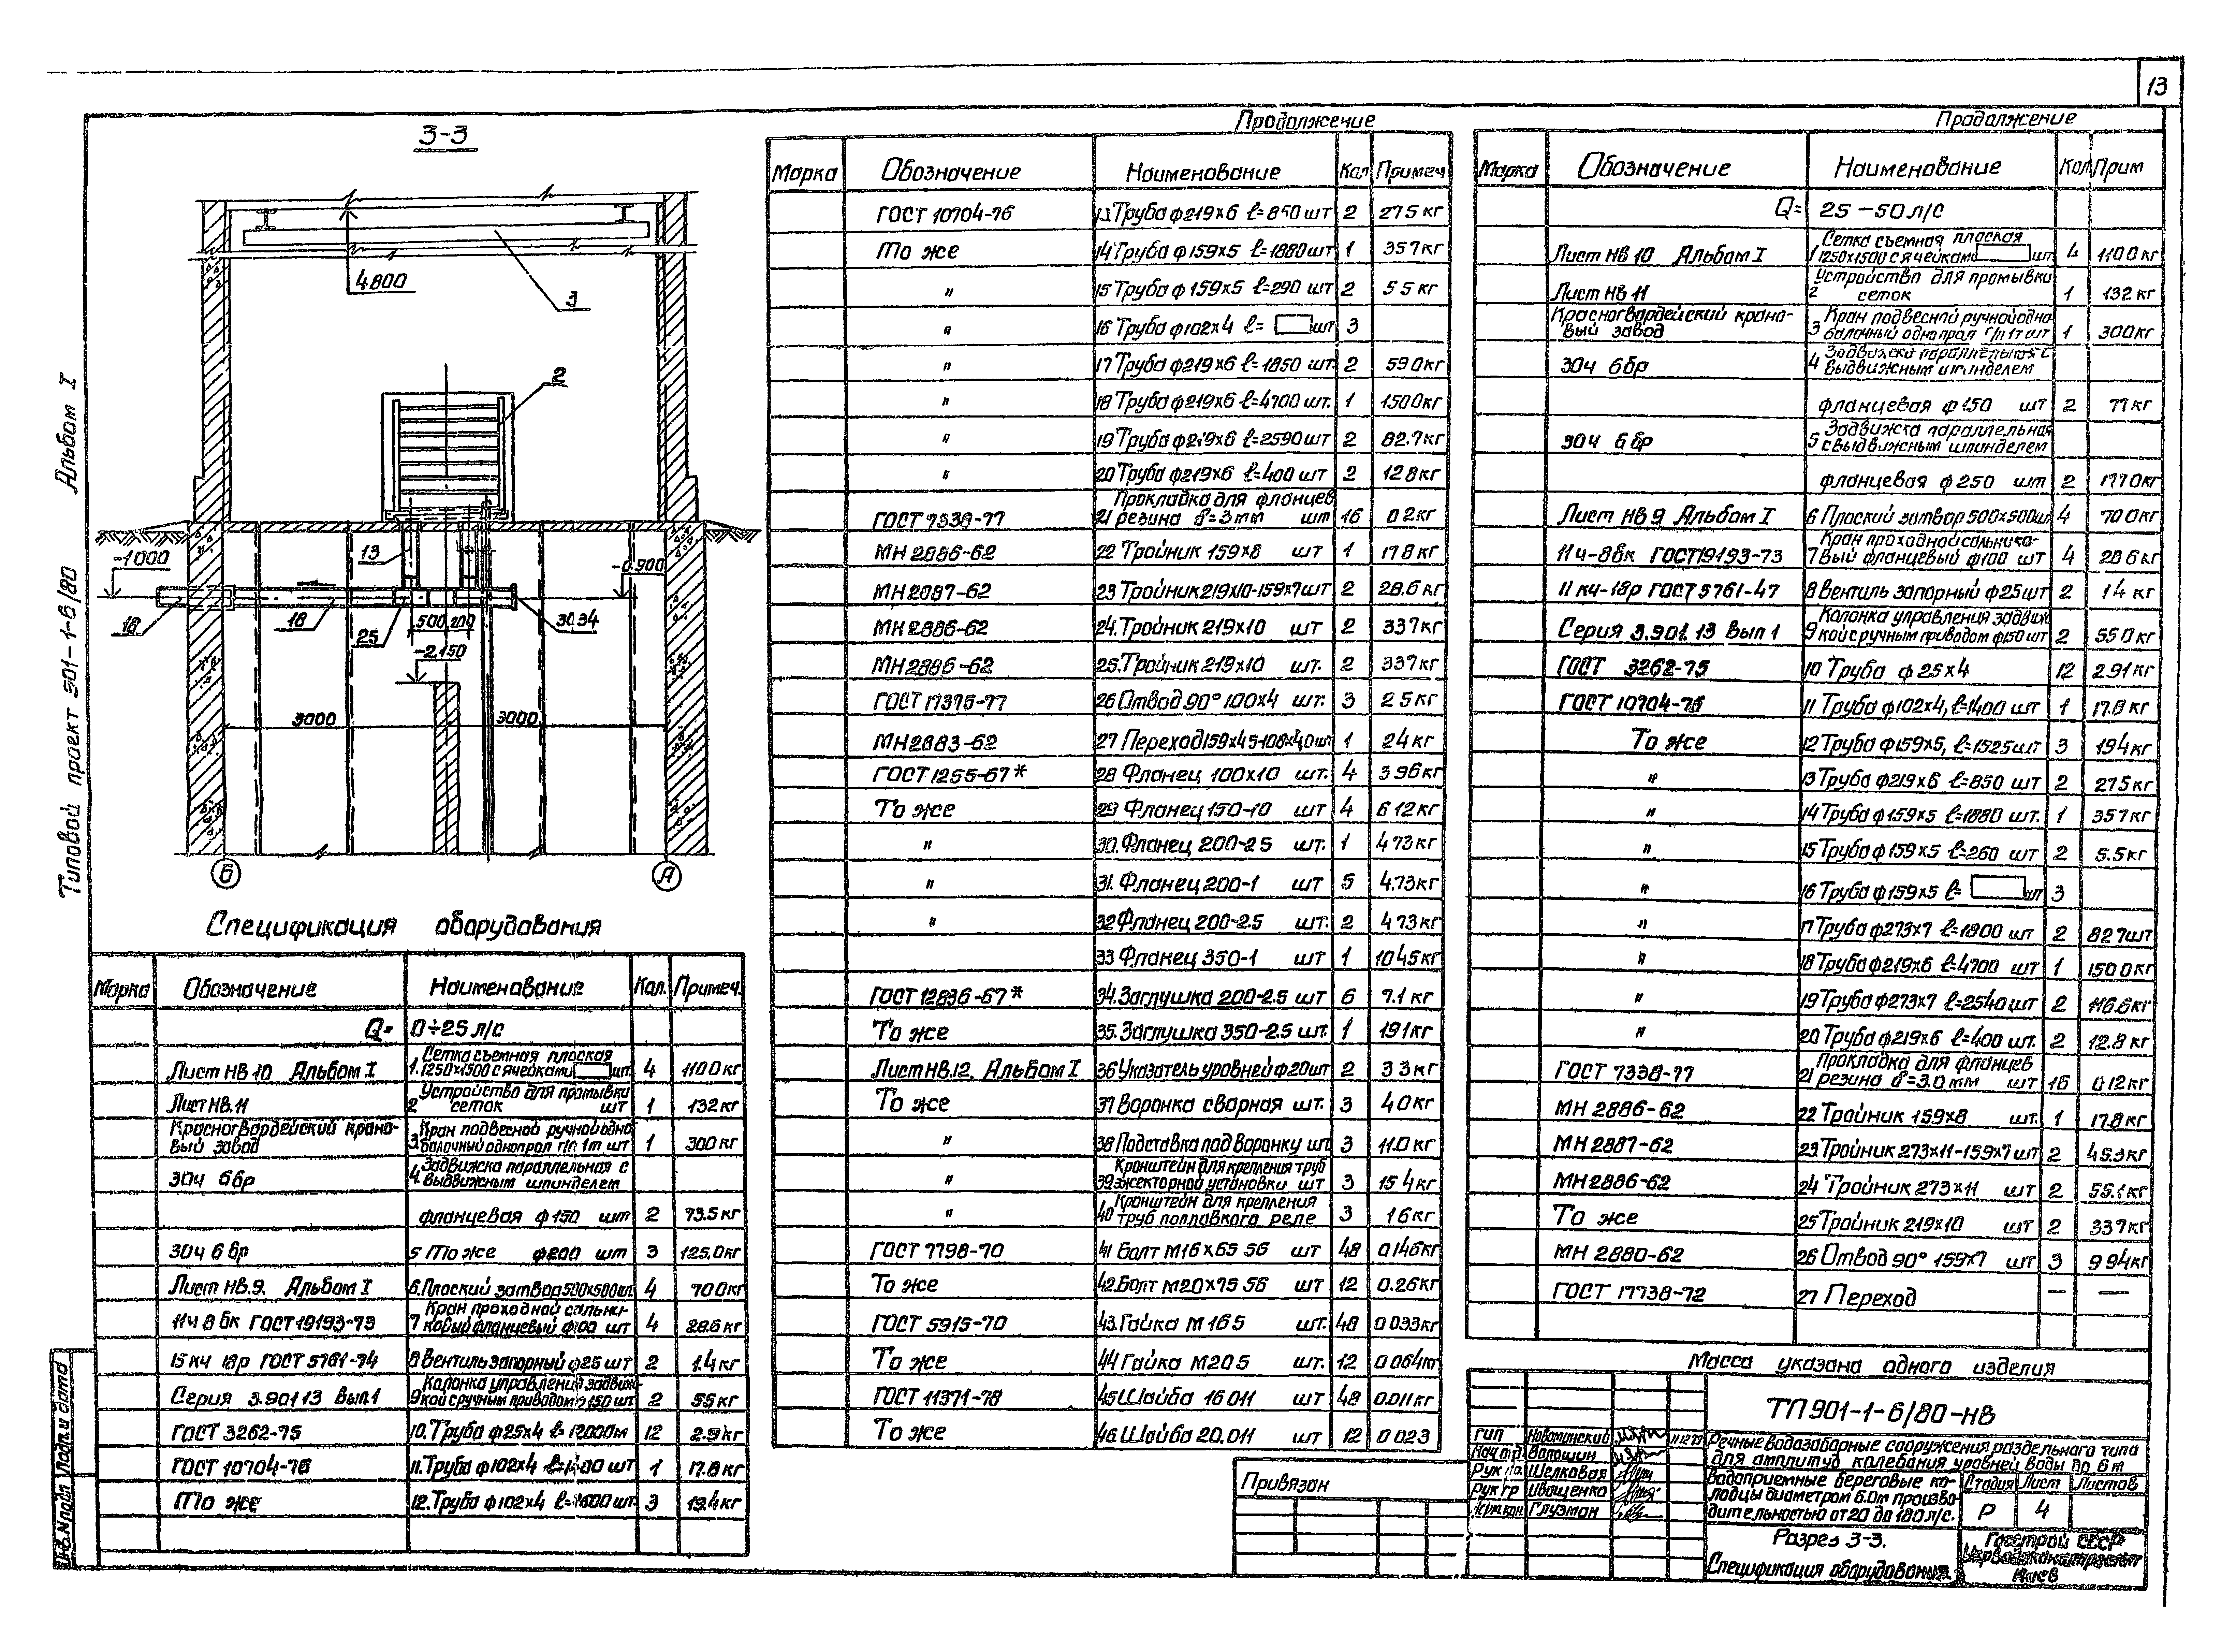 13
Типовой проект 901-1-6/80 Альбом I
3-3
4.800
3
2
-1000
13
-0.900
18
18
25
500 200
30.34
-2.150
3000
3000
Б
А
Спецификация оборудования
Марка Обозначение Наименование Кол. Примеч.
Q= 0÷25 л/с
Лист НВ 10 Альбом I 1. Сетка съемная плоская 1250х1500 с ячейками шт. 4 1100кг
Лист НВ.11 2 Устройство для промывки сеток шт 1 132кг
Красногвардейский крановый завод 3. Кран подвесной ручной однобалочный однопрол г/п 1т шт 1 300кг
30ч 6бр 4. Задвижка параллельная с выдвижным шпинделем
фланцевая ф150 шт 2 73.5кг
30ч 6 бр 5 То же ф200 шт 3 125.0кг
Лист НВ.9. Альбом I 6. Плоский затвор 500х500шт 4 700кг
11ч 8 бк ГОСТ 19193-73 7 Кран проходной сальниковый фланцевый ф100 шт 4 28.6кг
15 кч 18р ГОСТ 5761-74 8 Вентиль запорный ф25 шт 2 1.4кг
Серия 3.901 13 Вып.1 9 Колонка управления задвижкой с ручным приводом ф150 шт 2 55кг
ГОСТ 3262-75 10. Труба ф25х4 ℓ= 12000м 12 2.9кг
ГОСТ 10704-76 11. Труба ф102х4 ℓ=1400 шт 1 17.8кг
То же 12. Труба ф102х4 ℓ=1600 шт. 3 19.4кг
Продолжение
Марка Обозначение Наименование Кол Примеч
ГОСТ 10704-76 13 Труба ф219х6 ℓ=850 шт 2 27.5кг
То же 14 Труба ф159х5 ℓ=1880шт 1 35.7кг
" 15 Труба ф159х5 ℓ=290 шт 2 5.5 кг
" 16 Труба ф102х4 ℓ= шт 3
" 17 Труба ф219х6 ℓ=1850 шт. 2 59.0кг
" 18 Труба ф219х6 ℓ=4700 шт. 1 150.0кг
" 19 Труба ф219х6 ℓ=2590 шт 2 82.7кг
" 20 Труба ф219х6 ℓ=400 шт 2 12.8кг
ГОСТ 7338-77 21 Прокладка для фланцев резина δ=3mm шт 16 0.2кг
МН 2886-62 22 Тройник 159х8 шт 1 17.8 кг
МН 2887-62 23 Тройник 219х10-159х7шт 2 28.6 кг
МН 2886-62 24. Тройник 219х10 шт 2 33.7кг
МН 2886-62 25. Тройник 219х10 шт. 2 33.7кг
ГОСТ 17375-77 26 Отвод 90° 100х4 шт. 3 2.5 кг
МН 2883-62 27 Переход 159х4.5-108х4.0 шт 1 2.4кг
ГОСТ 1255-67* 28 Фланец 100х10 шт. 4 3.96кг
То же 29 Фланец 150-10 шт 4 6.12кг
" 30. Фланец 200-2.5 шт. 1 4.73кг
" 31. Фланец 200-1 шт 5 4.73кг
" 32 Фланец 200-2.5 шт. 2 4.73кг
33 Фланец 350-1 шт 1 10.45кг
ГОСТ 12836-67* 34. Заглушка 200-2.5 шт 6 7.1кг
То же 35. Заглушка 350-2.5 шт. 1 19.1кг
Лист НВ.12. Альбом I 36 Указатель уровней ф20шт 2 3.3кг
То же 37 Воронка сварная шт. 3 4.0кг
" 38 Подставка под воронку шт 3 11.0кг
" 39 Кронштейн для крепления труб эжекторной установки шт 3 15.4кг
" 40 Кронштейн для крепления труб поплавкого реле 3 1.6кг
ГОСТ 7798-70 41 Болт М16х65 56 шт 48 0.146кг
То же 42. Болт М20х75 56 шт 12 0.26кг
ГОСТ 5915-70 43. Гайка М16 5 шт. 48 0.033кг
То же 44 Гайка М20 5 шт. 12 0.064кг
ГОСТ 11371-78 45 Шайба 16 011 шт 48 0.011кг
То же 46. Шайба 20.011 шт 12 0.023
Продолжение
Марка Обозначение Наименование Кол Прим
Q= 25-50 л/с
Лист НВ 10 Альбом I 1 Сетка съемная плоская 1250х1500 с ячейками шт 4 1100кг
Лист НВ 11 2 Устройство для промывки сеток 1 132кг
Красногвардейский крановый завод 3 Кран подвесной ручной однобалочный однопрол г/п 1т шт 1 300кг
30ч 6бр 4 Задвижка параллельная с выдвижным шпинделем
фланцевая ф150 шт 2 77кг
30ч 6 бр 5 Задвижка параллельная с выдвижным шпинделем
фланцевая ф250 шт 2 177.0кг
Лист НВ 9 Альбом I 6 Плоский затвор 500х500ш 4 70.0кг
11ч-8бк ГОСТ19193-73 7 Кран проходной сальниковый фланцевый ф100 шт 4 28.6кг
11 кч-18р ГОСТ 5761-47 8 Вентиль запорный ф25шт 2 1.4 кг
Серия 3.901.13 Вып 1 9 Колонка управления задвижкой с ручным приводом ф150 шт 2 55.0кг
ГОСТ 3262-75 10 Труба ф25х4 12 2.91кг
ГОСТ 10704-76 11 Труба ф102х4, ℓ=1400 шт 1 17.8кг
То же 12 Труба ф159х5, ℓ=1525шт 3 19.4кг
" 13 Труба ф219х6 ℓ=850 шт 2 27.5кг
" 14 Труба ф159х5 ℓ=1880 шт. 1 35.7кг
" 15 Труба ф159х5 ℓ=260 шт 2 5.5кг
" 16 Труба ф159х5 ℓ= шт 3
" 17 Труба ф273х7 ℓ=1800 шт 2 82.7шт
" 18 Труба ф219х6 ℓ=4700 шт 1 150.0кг
" 19 Труба ф273х7 ℓ=2540 шт 2 116.6кг
" 20 Труба ф219х6 ℓ=400 шт. 2 12.8кг
ГОСТ 7338-77 21 Прокладка для фланцев резина δ=3.0mm шт 16 0.12кг
МН 2886-62 22 Тройник 159х8 шт. 1 17.8кг
МН 2887-62 23. Тройник 273х11-159х7 шт 2 45.3кг
МН 2886-62 24 Тройник 273х11 шт 2 55.1кг
То же 25 Тройник 219х10 шт 2 33.7кг
МН 2880-62 26 Отвод 90° 159х7 шт 3 9.94кг
ГОСТ 17738-72 27 Переход — —
Масса указана одного изделия
ТП 901-1-6/80-НВ
Речные водозаборные сооружения раздельного типа
для амплитуд колебания уровней воды до 6m
Водоприемные береговые ко-
лодцы диаметром 6.0m произво-
дительностью от 20 до 180 л/с.
Стадия Лист Листов
Р 4
Разрез 3-3.
Спецификация оборудования.
Госстрой СССР
Киев
ГИП Новоминский
Нач отд Волошин
Рук гр. Шелковая
Рук гр Иващенко
Глузман
Привязан
Инв.N подл Подп. и дата